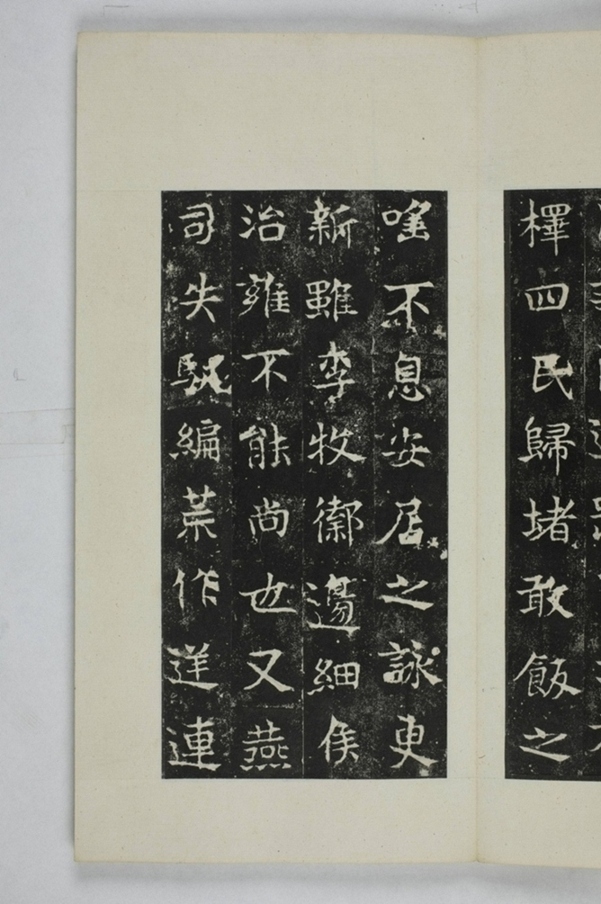 檡四民歸堵敢飯之
嗤不息安居之詠更
新雖李牧禦邊細侯
治雍不能尚也又燕
司失馭編荒作逆連